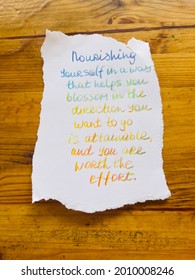 Nourishing
yourself in a way
that helps you
blossom in the
direction you
want to go
is attainable,
and you are
worth the
effort.
shutterstock.com · 2010008246